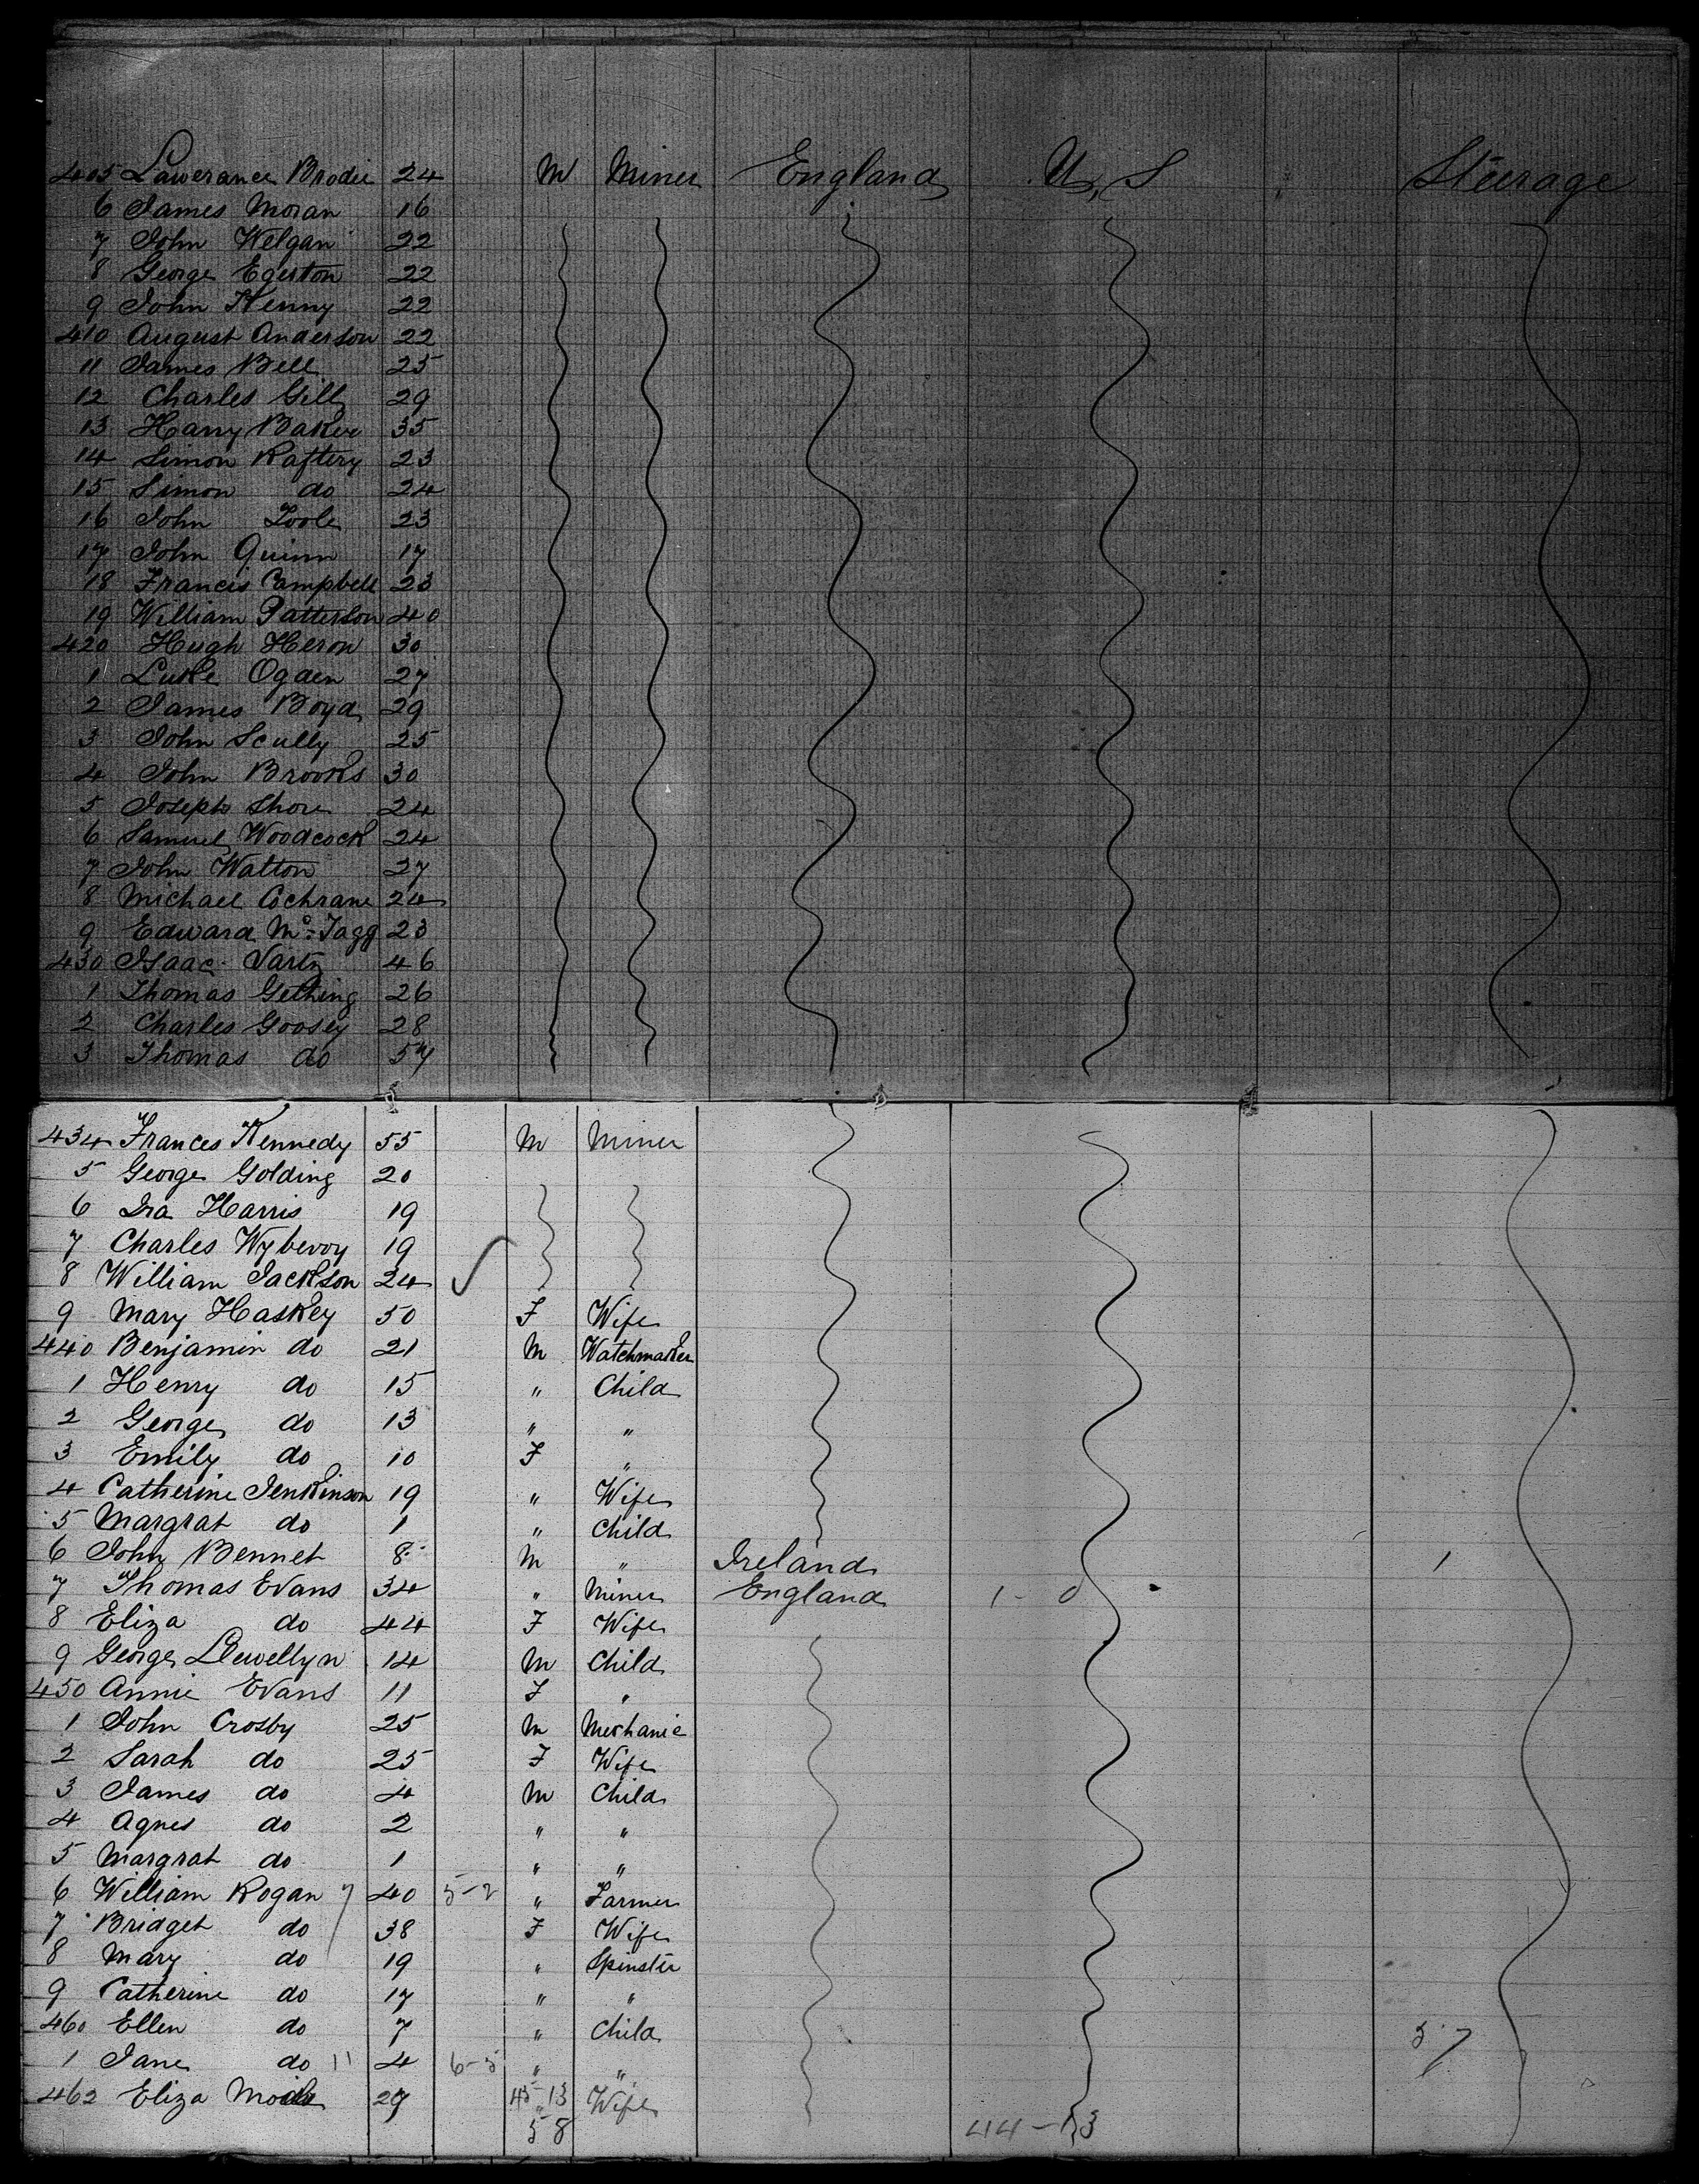 405 Lawerance Brodie 24 M Miner England U, S Steerage
6 James Moran 16
7 John Welgan 22
8 George Egerton 22
9 John Kenny 22
410 August Anderson 22
11 James Bell 25
12 Charles Gill 29
13 Harry Baker 35
14 Simon Raftery 23
15 Simon do 24
16 John Toole 23
17 John Quinn 17
18 Francis Campbell 23
19 William Patterson 40
420 Hugh Heron 30
1 Luke Ogden 27
2 James Boyd 29
3 John Scully 25
4 John Brooks 30
5 Joseph Shore 24
6 Samuel Woodcock 24
7 John Walton 27
8 Michael Cochrane 24
9 Edward Mc Tagg 23
430 Isaac 46
1 Thomas Gething 26
2 Charles Goosey 28
3 Thomas do 57
434 Frances Kennedy 55 M Miner
5 George Golding 20
6 Ira Harris 19
7 Charles 19
8 William Jackson 24
9 Mary Haskey 50 F Wife
440 Benjamin do 21 M Watchmaker
1 Henry do 15 " Child
2 George do 13 " "
3 Emily do 10 F "
4 Catherine Jenkinson 19 " Wife
5 Margrat do 1 " Child
6 John Bennet 8 M " Ireland 1
7 Thomas Evans 34 " Miner England 1 - 0
8 Eliza do 44 F Wife
9 George Llewellyn 14 M Child
450 Annie Evans 11 F "
1 John Crosby 25 M Mechanic
2 Sarah do 25 F Wife
3 James do 4 M Child
4 Agnes do 2 " "
5 Margrat do 1 " "
6 William Rogan 7 40 5-2 " Farmer
7 Bridget do 38 F Wife
8 Mary do 19 " Spinster
9 Catherine do 17 " "
460 Ellen do 7 " Child 57
1 Jane do 11 4 6-5 " "
462 Eliza 29 45-13 " Wife
58 44-13